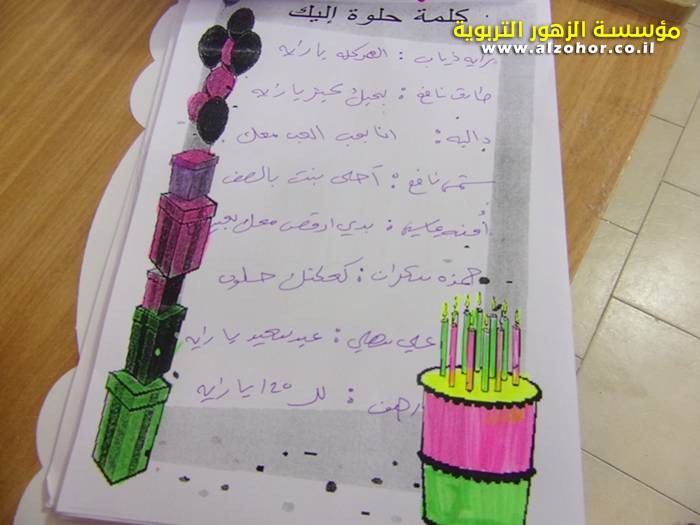 مؤسسة الزهور التربوية
www.alzohor.co.il
كلمة حلوة إليك
براءه ذياب : العمر كله يا رايه
طارق نافع : بحبك كثير يا رايه
داليه : انا بحب العب معك
نافع : أحلى بنت بالصف
أمنه : بدي ارقص معك
حمزه بدران : كعكتك حلوه
علي : عيد سعيد يا رايه
رهف : لل 120 يا رايه